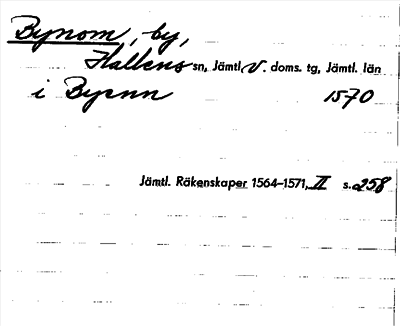 Bynom, by,
Hallens sn, Jämtl. V. doms. tg, Jämtl. län
i Byenn 1570
Jämtl. Räkenskaper 1564–1571, II s. 258